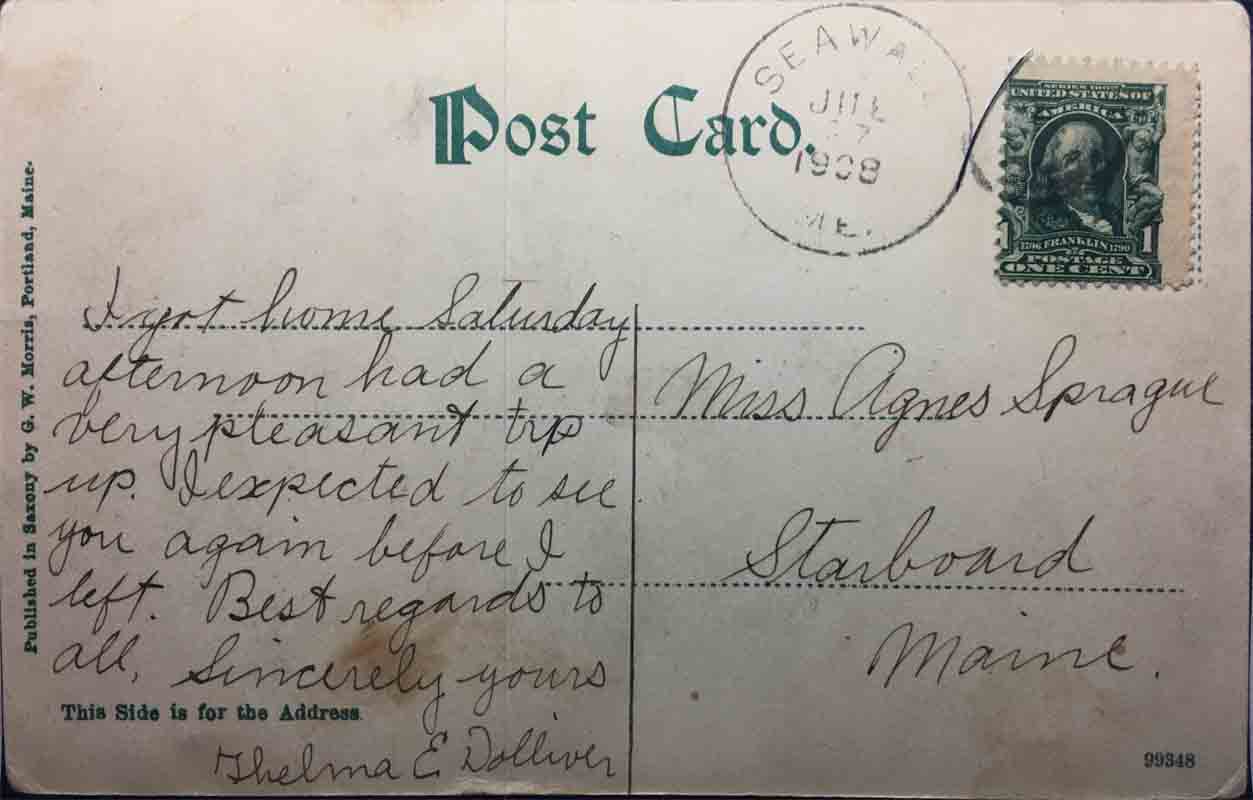 Post Card.
SEAWALL
JUL
27
1908
ME.
SERIES 1902
UNITED STATES OF
AMERICA
1 1706 FRANKLIN 1790 1
POSTAGE
ONE CENT
Published in Saxony by G. W. Morris, Portland, Maine.
I got home Saturday
afternoon had a
very pleasant trip
up. I expected to see
you again before I
left. Best regards to
all, Sincerely yours
Thelma E Dolliver
This Side is for the Address.
Miss Agnes Sprague
Starboard
Maine.
99348